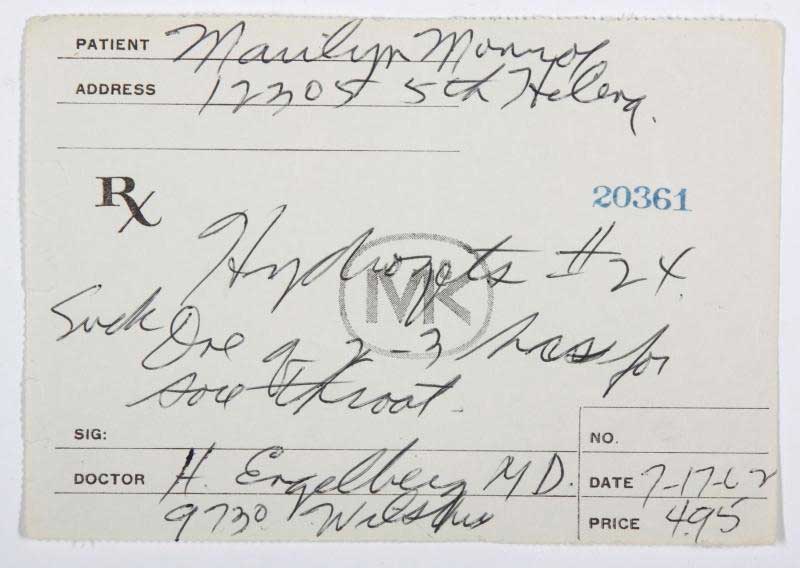 PATIENT Marilyn Monroe
ADDRESS 12305 5th Helena.
Rx
20361
MK
Hydrozets #24.
Suck One q 2-3 hrs for
sore throat.
SIG:
NO.
DOCTOR H. Engelberg MD.
DATE 7-17-62
9730 Wilshire
PRICE 4.95